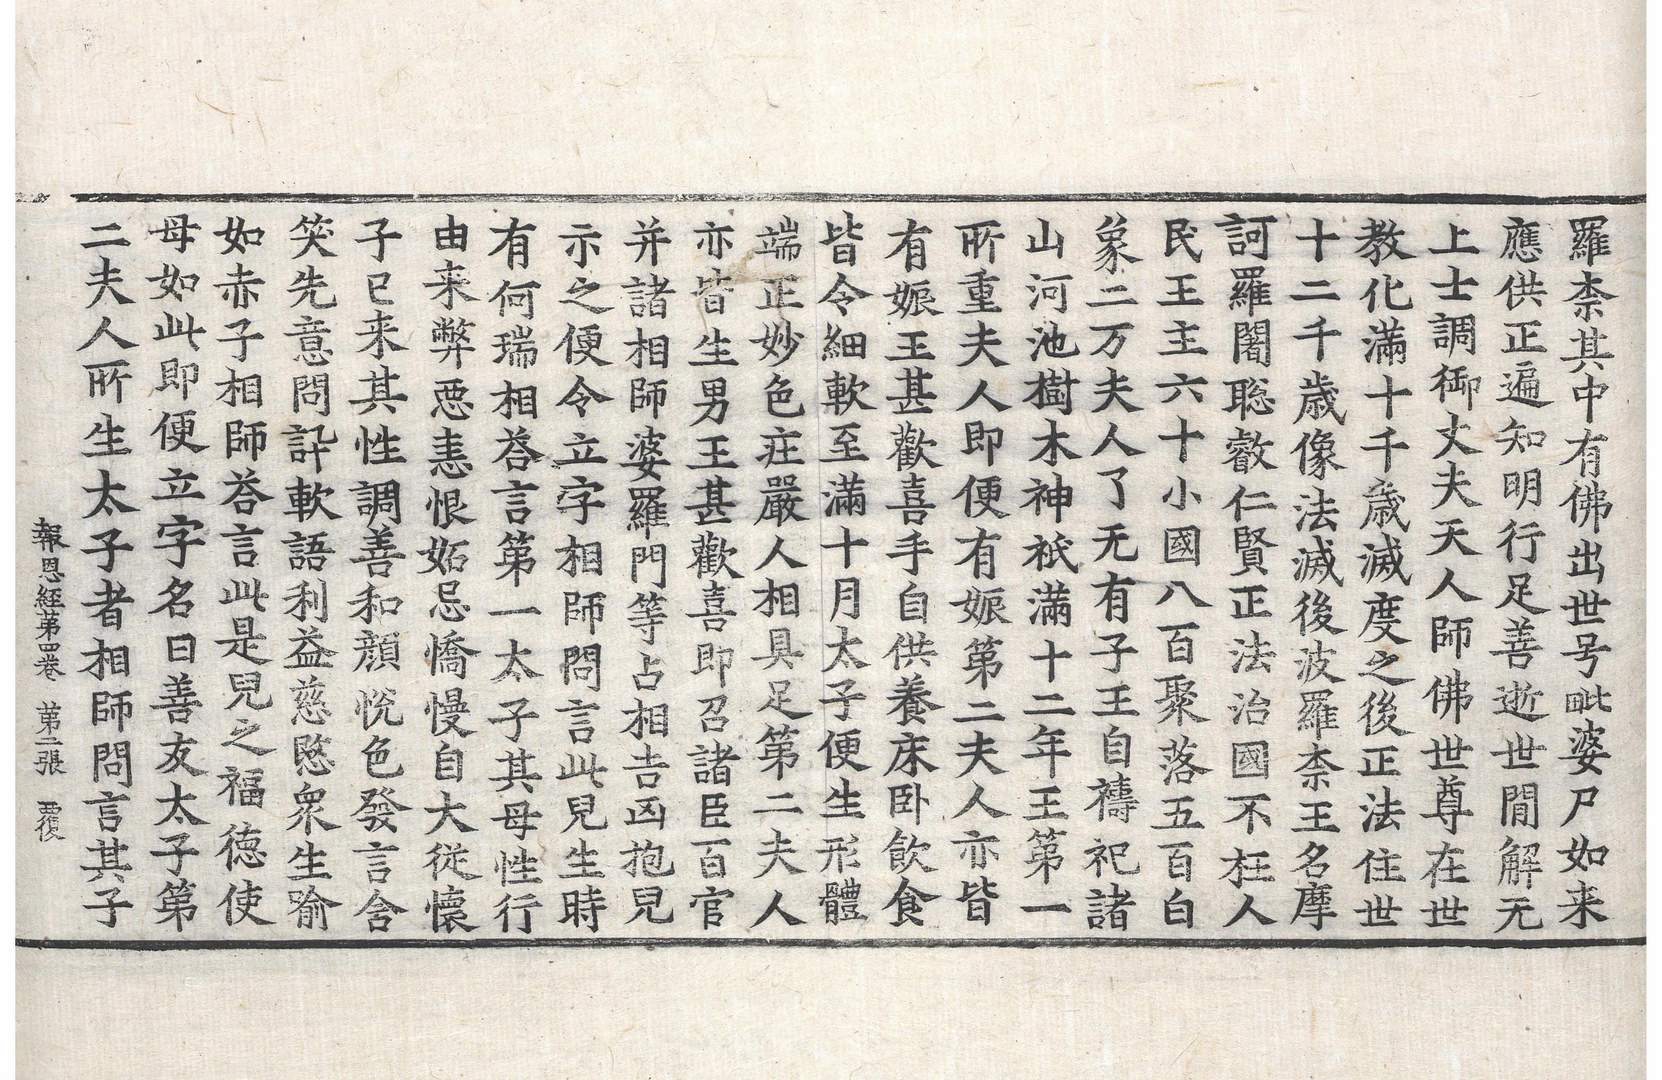 羅柰其中有佛出世号毗婆尸如来
應供正遍知明行足善逝世閒解无
上士調御丈夫天人師佛世尊在世
教化滿十千歲滅度之後正法住世
十二千歲像法滅後波羅柰王名摩
訶羅闍聡叡仁賢正法治國不枉人
民王主六十小國八百聚落五百白
象二万夫人了无有子王自禱祀諸
山河池樹木神祇滿十二年王第一
所重夫人即便有娠第二夫人亦皆
有娠王甚歡喜手自供養床卧飲食
皆令細軟至滿十月太子便生形體
端正妙色莊嚴人相具足第二夫人
亦皆生男王甚歡喜即召諸臣百官
并諸相師婆羅門等占相吉凶抱兒
示之便令立字相師問言此兒生時
有何瑞相荅言第一太子其母性行
由来弊惡恚恨妬忌憍慢自大從懷
子已来其性調善和顔悅色發言含
笑先意問訊軟語利益慈愍衆生喻
如赤子相師荅言此是兒之福德使
母如此即便立字名曰善友太子第
二夫人所生太子者相師問言其子
報恩經第四卷 第二張 覆